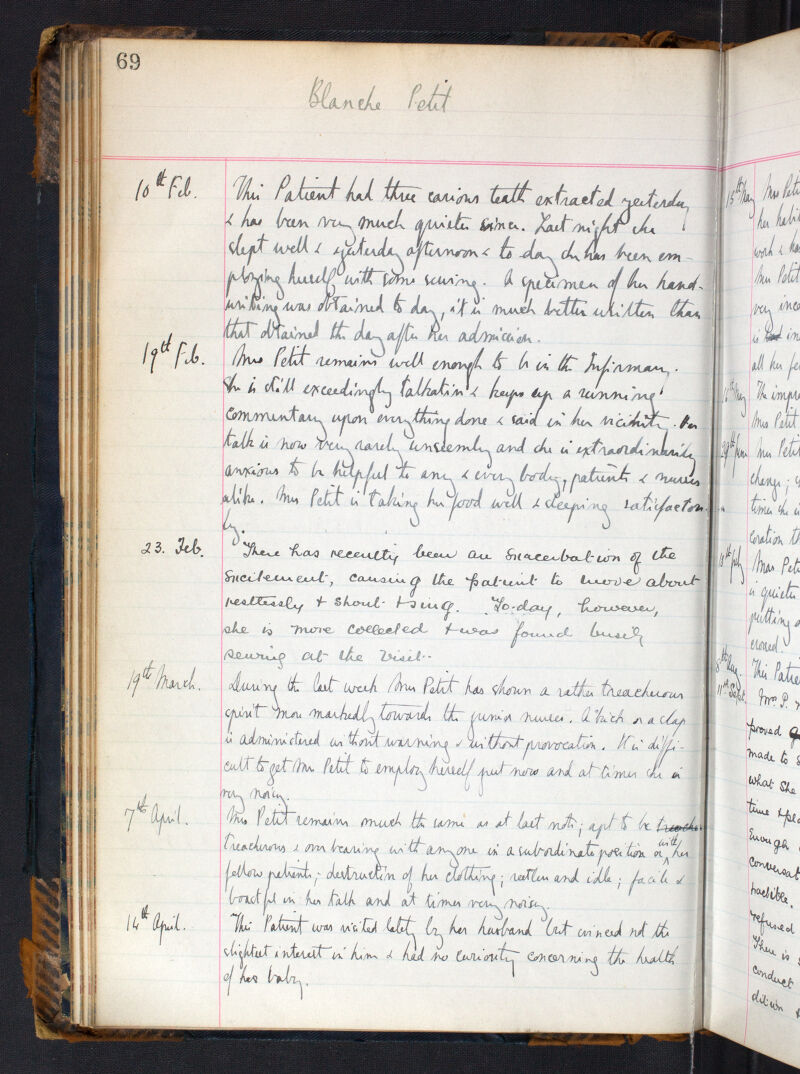 69
Blanche Petit
10th Feb. This Patient had three carious teeth extracted yesterday
& has been very much quieter since. Last night she
slept well & yesterday afternoon & to day she has been em-
ploying herself with some sewing. A specimen of her hand-
writing was obtained to day, it is much better written than
that obtained the day after her admission.
19th Feb. Mrs Petit remains well enough to be in the Infirmary.
She is still exceedingly talkative & keeps up a running
commentary upon everything done & said in her vicinity. Her
talk is now very rarely unseemly and she is extraordinarily
anxious to be helpful to any & every body, patients & nurses
alike. Mrs Petit is taking her food well & sleeping satisfactori-
ly.
23. Feb. There has recently been an exacerbation of the
excitement, causing the patient to move about
restlessly & shout & sing. To-day, however,
she is more collected & was found busily
sewing at the visit.
19th March. During the last week Mrs Petit has shown a rather treacherous
spirit more markedly towards the junior nurses. A kick or a slap
is administered without warning & without provocation. It is diffi-
cult to get Mrs Petit to employ herself just now and at times she is
very noisy.
7th April. Mrs Petit remains much the same as at last note; apt to be treache
treacherous & overbearing with anyone in a subordinate position or with her
fellow patients; destructive of her clothing; restless and idle; facile &
boastful in her talk and at times very noisy.
14th April. This Patient was visited lately by her husband but evinced not the
slightest interest in him & had no curiosity concerning the health
of her baby.
15th May Mrs Peti
her habi
work & ha
Mrs Petit
very inco
is in
all her fe
The impro
Mrs Petit
29th June Mrs Petit
change;
times she is
ceration th
18th July Mrs Peti
is quieter
putting
This Patie
11th Sept. Mrs. P.
proved
made to s
what she
time & pla
enough
conversat
possible.
refused
There is
conduct
dition